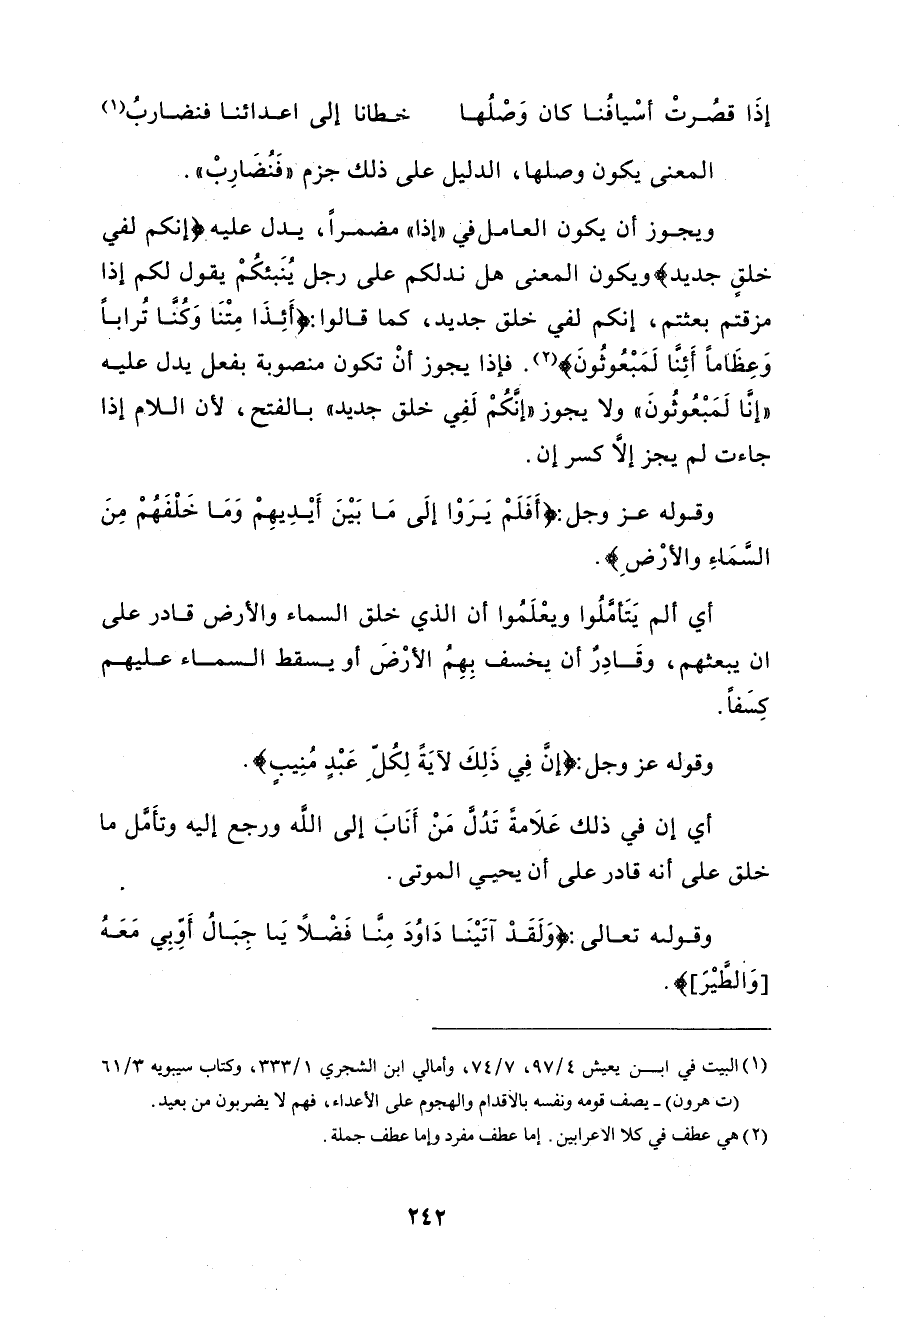 إذَا قصُرتْ أسْيافُنا كان وَصْلُها خطانا إلى اعدائنا فنضاربُ(١)
المعنى يكون وصلها، الدليل على ذلك جزم «فَنُضَارِبْ».
ويجوز أن يكون العامل في «إذا» مضمراً، يدل عليه ﴿إنكم لفي
خلقٍ جديد﴾ ويكون المعنى هل ندلكم على رجل يُنَبئكُمْ يقول لكم إذا
مزقتم بعثتم، إنكم لفي خلق جديد، كما قالوا: ﴿أَئِذَا مِتْنَا وَكُنَّا تُراباً
وَعِظَاماً أَئِنَّا لَمَبْعُوثُونَ﴾(٢). فإذا يجوز أنْ تكون منصوبة بفعل يدل عليه
«إنَّا لَمَبْعُوثُونَ» ولا يجوز «إنَّكُمْ لَفِي خلق جديد» بالفتح، لأن اللام إذا
جاءت لم يجز إلاَّ كسر إن.
وقوله عز وجل: ﴿أَفَلَمْ يَرَوْا إلَى مَا بَيْنَ أَيْدِيهِمْ وَمَا خَلْفَهُمْ مِنَ
السَّمَاءِ والأرْضِ﴾.
أي ألم يَتَأمَّلُوا ويعْلَمُوا أن الذي خلق السماء والأرض قادر على
ان يبعثهم، وقَادِرٌ أن يخسف بِهِمُ الأرْضَ أو يسقط السماء عليهم
كِسَفاً.
وقوله عز وجل: ﴿إنَّ فِي ذَلِكَ لآيَةً لِكُلِّ عَبْدٍ مُنِيبٍ﴾.
أي إن في ذلك عَلَامةً تَدُلَّ مَنْ أَنَابَ إلى اللَّه ورجع إليه وتأمَّل ما
خلق على أنه قادر على أن يحيي الموتى.
وقوله تعالى: ﴿وَلَقَدْ آتَيْنَا دَاوُدَ مِنَّا فَضْلاً يَا جِبَالُ أَوِّبِي مَعَهُ
[وَالطَّيْرَ]﴾.
(١) البيت في ابن يعيش ٩٧/٤، ٧٤/٧، وأمالي ابن الشجري ٣٣٣/١، وكتاب سيبويه ٦١/٣
(ت هرون) ـ يصف قومه ونفسه بالأقدام والهجوم على الأعداء، فهم لا يضربون من بعيد.
(٢) هي عطف في كلا الاعرابين. إما عطف مفرد وإما عطف جملة.
٢٤٢